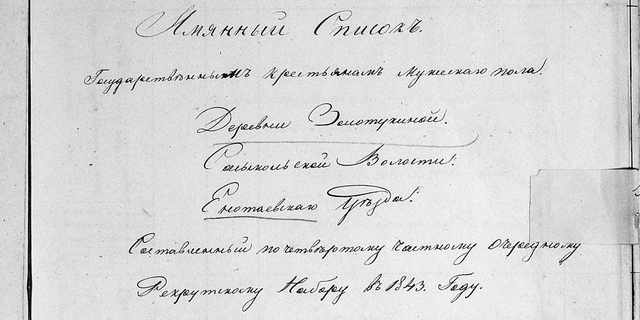 Имянный Списокъ.
Государственнымъ крестьянамъ мужескаго пола.
Деревни Золотухиной.
Сасыкольской Волости.
Енотаевскаго Уѣзда.
Составленный по четвертому частному очередному
Рекрутскому Набору въ 1843. Году.